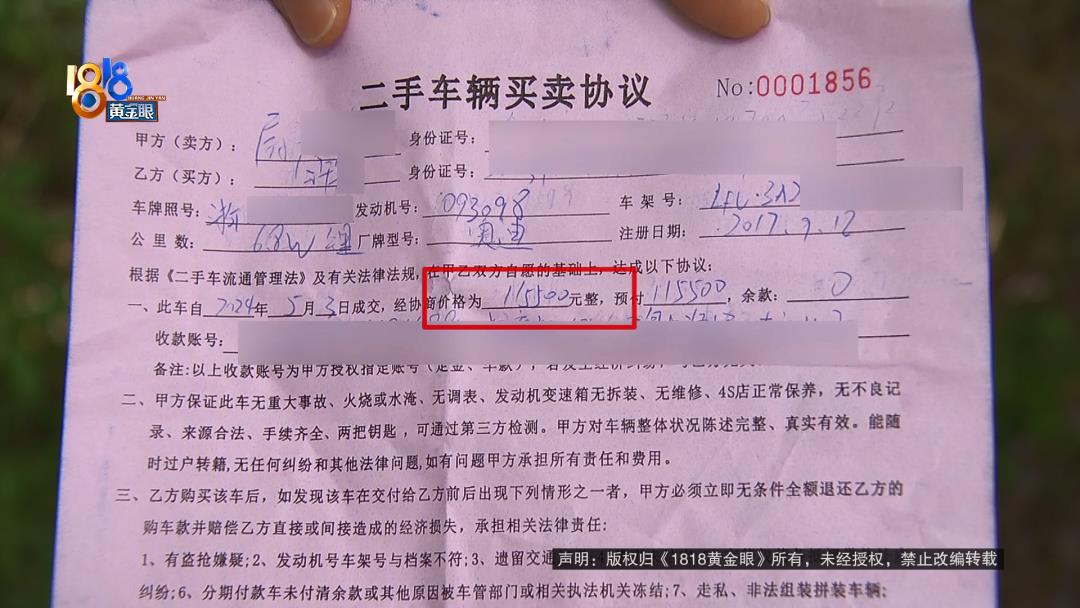 1818
HUANG JIN YAN
黄金眼
二手车辆买卖协议 No:0001856
甲方（卖方）： 身份证号：
乙方（买方）： 身份证号：
车牌照号：浙 发动机号：093098 车架号：
公里数：6.8W公里 厂牌型号：奥迪 注册日期：2017.9.12
根据《二手车流通管理法》及有关法律法规，在甲乙双方自愿的基础上，达成以下协议：
一、此车自2024年5月3日成交，经协商价格为115500元整，预付115500，余款：0
收款账号：
备注：以上收款账号为甲方授权指定账号（定金、车款），若发生经济纠纷，
二、甲方保证此车无重大事故、火烧或水淹、无调表、发动机变速箱无拆装、无维修、4S店正常保养，无不良记
录、来源合法、手续齐全、两把钥匙，可通过第三方检测。甲方对车辆整体状况陈述完整、真实有效。能随
时过户转籍,无任何纠纷和其他法律问题,如有问题甲方承担所有责任和费用。
三、乙方购买该车后，如发现该车在交付给乙方前后出现下列情形之一者，甲方必须立即无条件全额退还乙方的
购车款并赔偿乙方直接或间接造成的经济损失，承担相关法律责任:
1、有盗抢嫌疑;2、发动机号车架号与档案不符;3、遗留交通
声明：版权归《1818黄金眼》所有，未经授权，禁止改编转载
纠纷;6、分期付款车未付清余款或其他原因被车管部门或相关执法机关冻结;7、走私、非法组装拼装车辆;